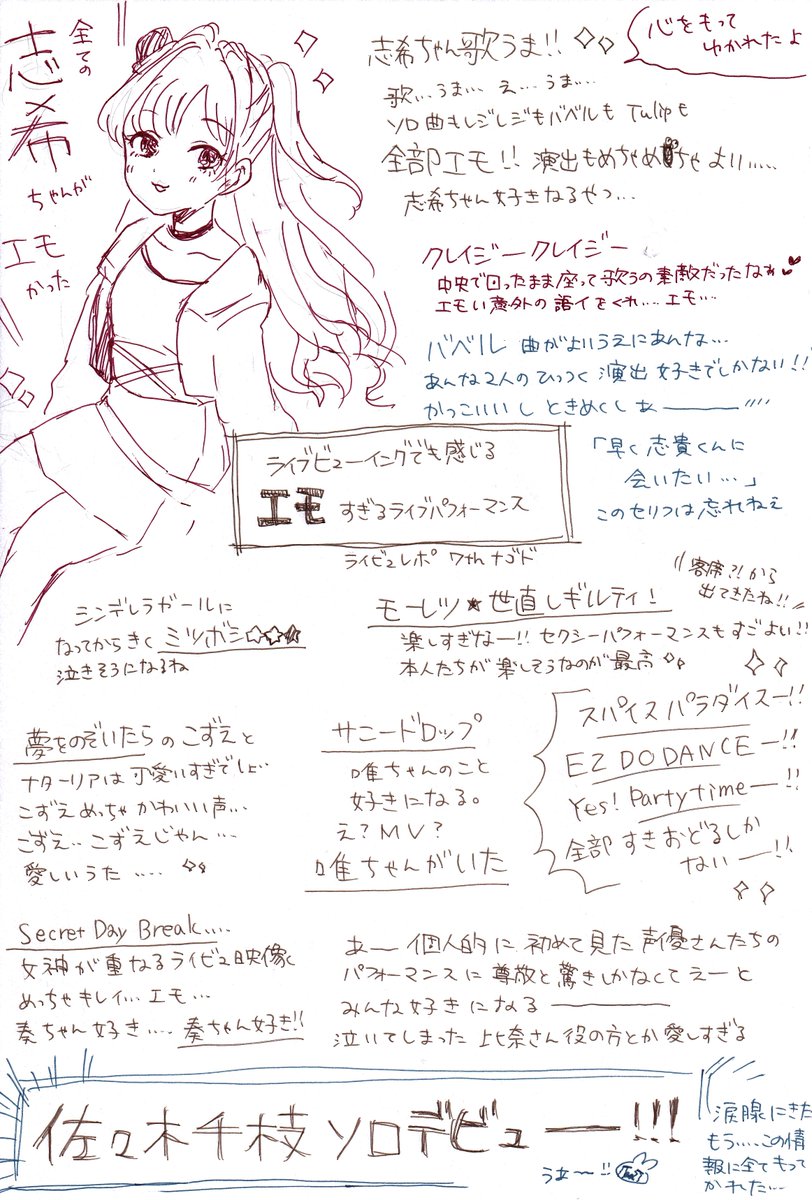 全ての
志希
ちゃんが
エモ
かった
志希ちゃん歌うま!!
心をもって
ゆかれたよ
歌...うま... え... うま....
ソロ曲もレジレジもバベルも Tulipも
全部エモ!! 演出もめちゃめちゃよい.....
志希ちゃん好きなるやつ...
クレイジークレイジー
中央で回ったまま座って歌うの素敵だったなぁ
エモい意外の語イをくれ.... エモ...
バベル 曲がよいうえにあんな...
あんな2人のひっつく演出好きでしかない!!
かっこいいし ときめくし あ――――
「早く志貴くんに
会いたい...」
このセリフは忘れねぇ
ライブビューイングでも感じる
エモすぎるライブパフォーマンス
ライビュレポ
シンデレラガールに
なってからきくミツボシ☆☆★
泣きそうになるね
モーレツ★世直しギルティ!
客席?!から
出てきたね!!
楽しすぎなー!! セクシーパフォーマンスもすごよい!!
本人たちが楽しそうなのが最高
夢をのぞいたらのこずえと
ナターリアは可愛いすぎでしょ..
こずえめっちゃかわいい声...
こずえ.. こずえじゃん...
愛しいうた ....
サニードロップ
唯ちゃんのこと
好きになる。
え?MV?
唯ちゃんがいた
スパイスパラダイスー!!
EZ DO DANCEー!!
Yes! Party timeー!!
全部すきおどるしか
ないー!!
Secret Day Break....
女神が重ねるライビュ映像く
めっちゃキレイ... エモ...
奏ちゃん好き.... 奏ちゃん好き!!
あー 個人的に 初めて見た声優さんたちの
パフォーマンスに尊敬と驚きしかなくてえーと
みんな好きになる――――
泣いてしまった 比奈さん役の方とか愛しすぎる
佐々木千枝ソロデビュー!!!
うぁー!!
涙腺にきた
もう.... この情
報に全てもって
かれた...